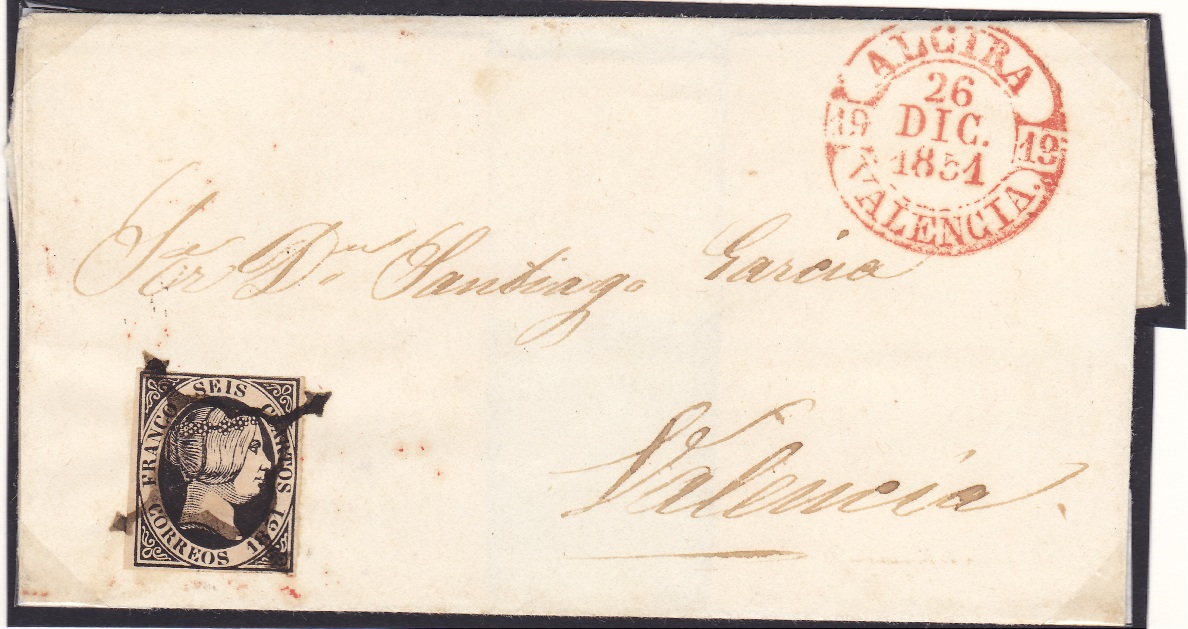 ALCIRA
26
DIC.
1851
19 19
VALENCIA.
Sor Dn. Santiago Garcia
FRANCO SEIS CUARTOS
CORREOS 1851
Valencia.